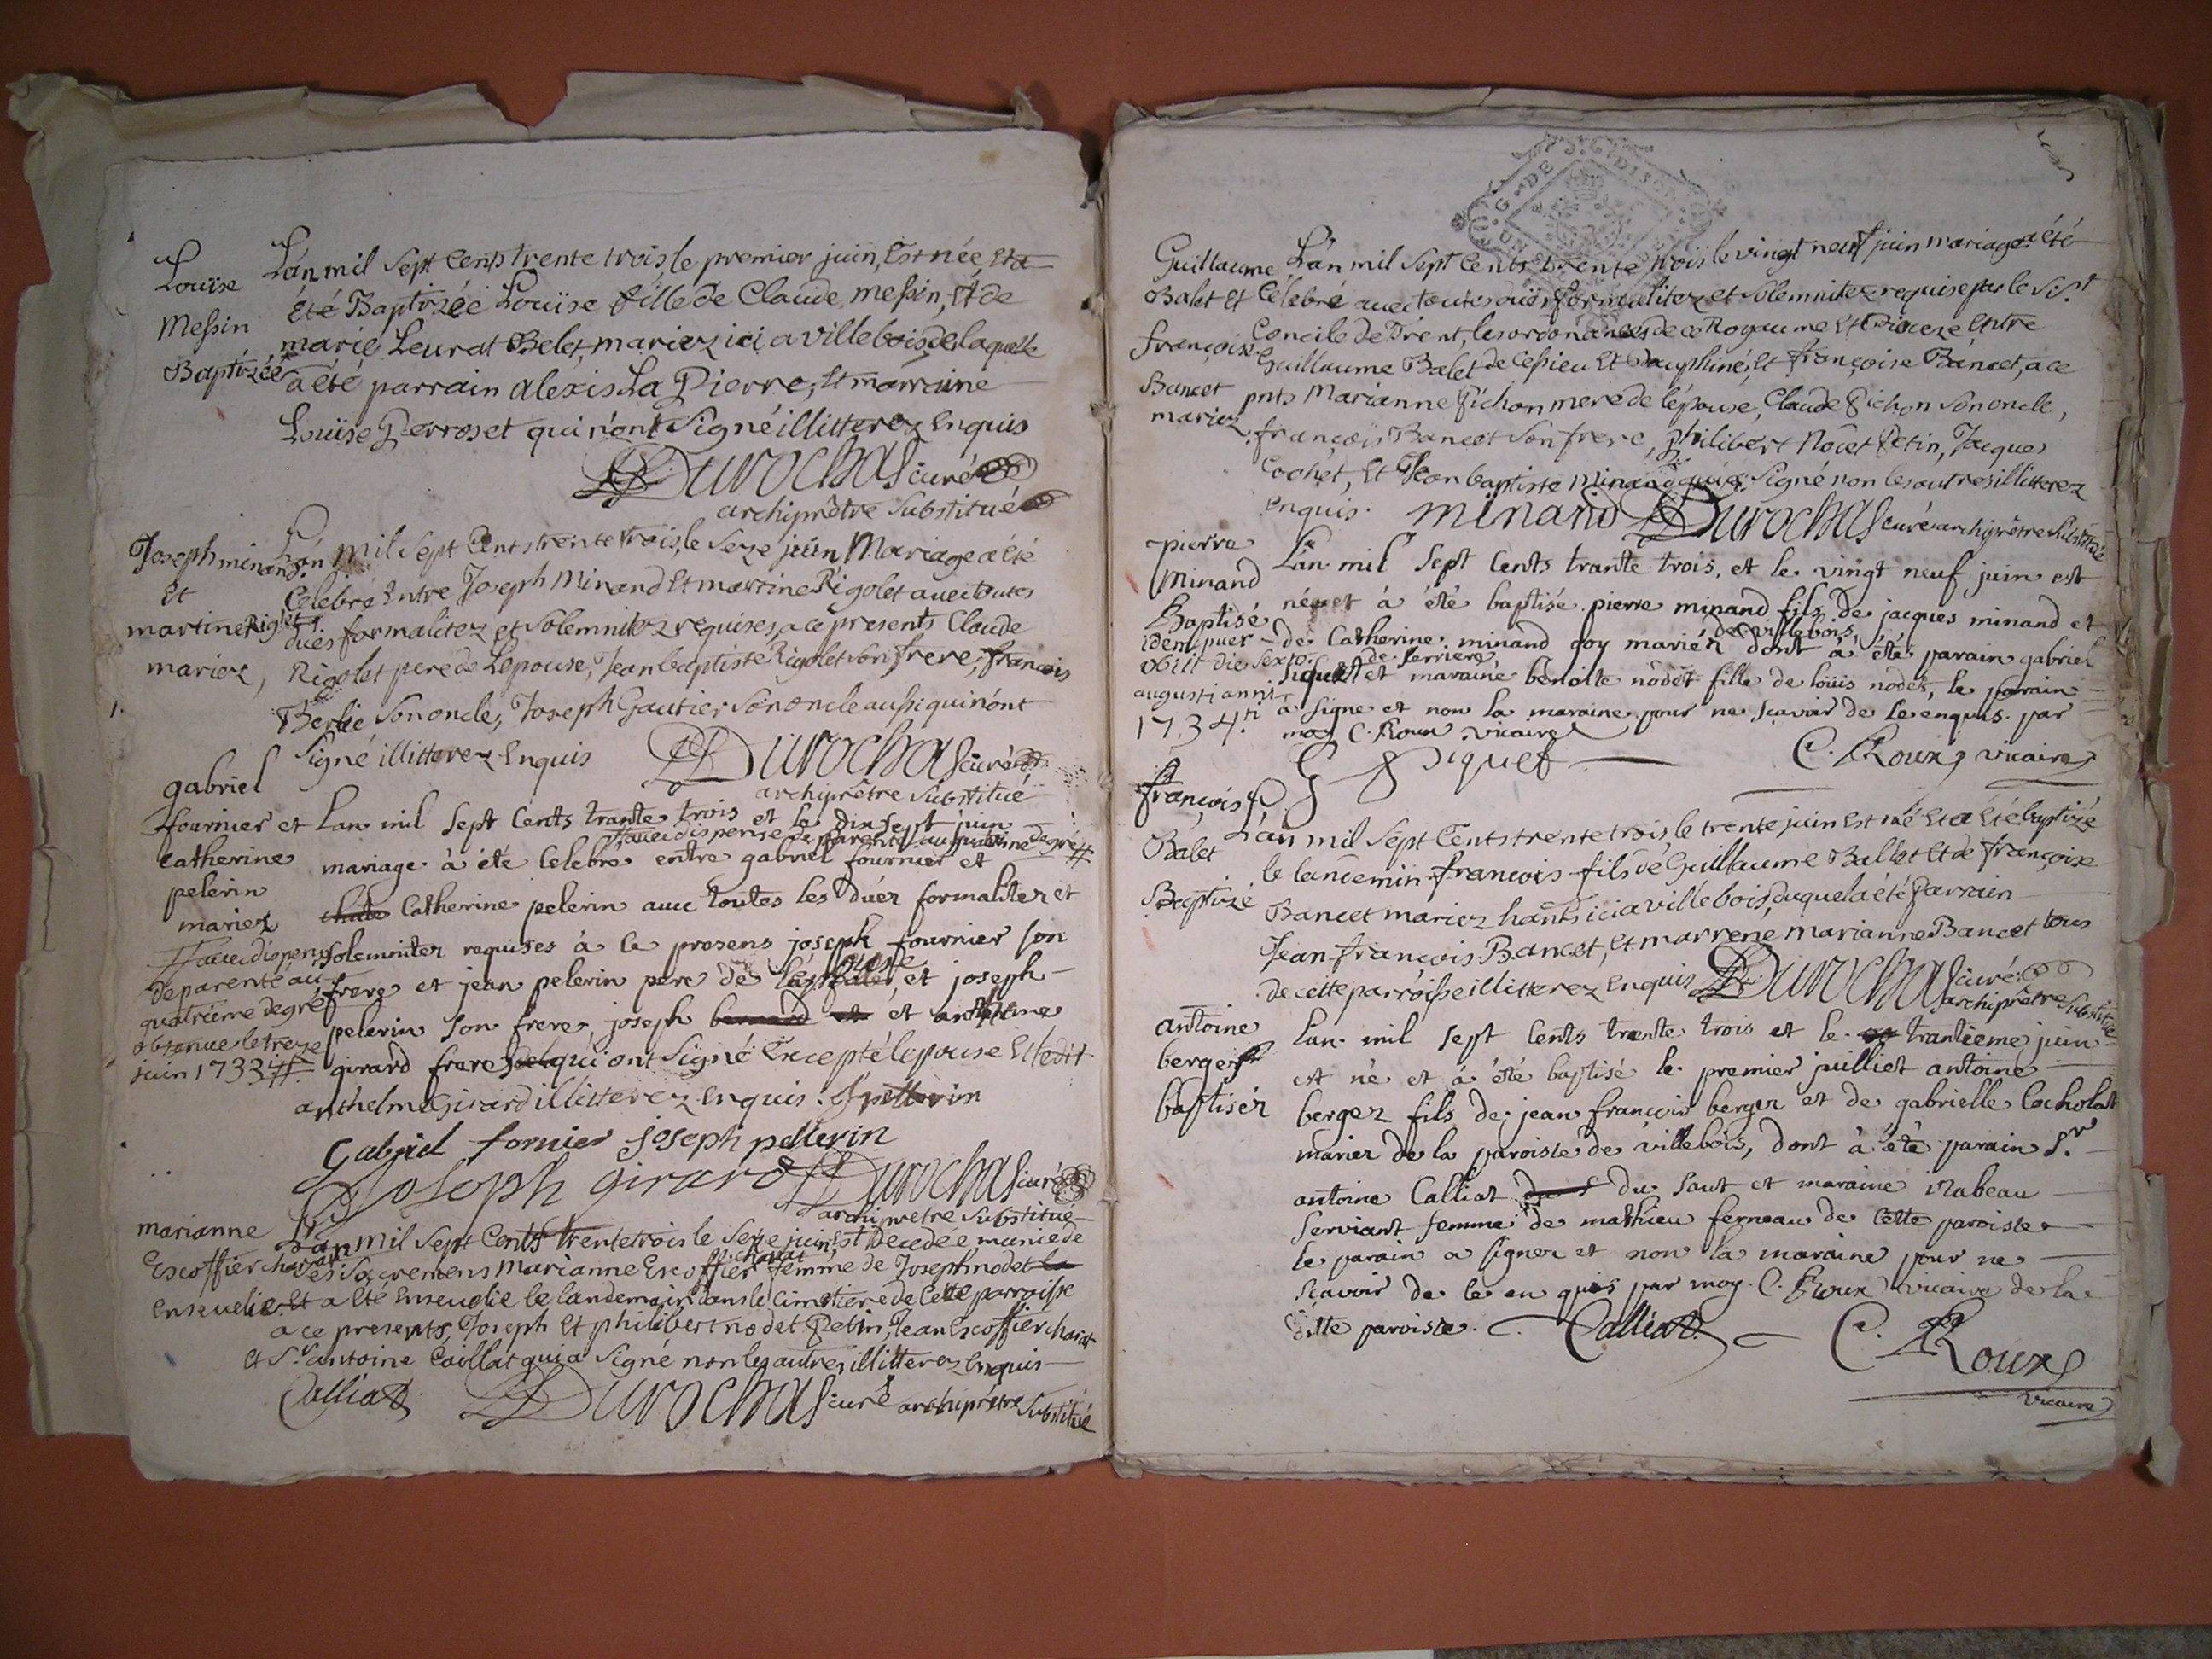 Louise
Messin
Baptizée
Lán mil Sept Cents trente trois, le premier juin, Est née, Et a
Eté Baptizée Louïse fille de Claude Messin, Et de
marie Leurat Belet, mariez ici a villebois, de laquelle
a été parrain alexis La Pierre, Et marraine
Louïse Perroset qui n'ont Signé illitterez Enquis
Durochas curé
archiprêtre Substitué
Joseph minand
Et
martine Riglet
mariez,
Lán mil Sept Cents trente trois, le Seze juin Mariage a été
Celebré Entre Joseph Minand Et martine Rigolet avec toutes
duës formalitez et Solemnitez requises, a ce presents Claude
Rigolet pere de Lepouse, Jean baptiste Rigolet son frere, françois
Berlie Son oncle, Joseph Gautier Son oncle aussi qui n'ont
Signé illitterez Enquis Durochas curé
archiprêtre Substitué
gabriel
fournier et
Catherine
pelerin
mariez
# avec dispense
de parenté au
quatrieme degré
obtenue le treze
juin 1733 #
Lan mil Sept Cents trante trois et le dix sept juin
# avec dispense de parenté au quatrieme degré #
mariage à été Celebré entre gabriel fournier et
Catherine pelerin avec toutes les duës formalitez et
solemnitez requises à ce presens joseph fournier son
frere et jean pelerin pere de lépouse et joseph
pelerin son frere, joseph bernard et et anthelme
girard freres qui ont Signé Excepté lepouse Et ledit
anthelme Girard illitterez Enquis. J pellerin
Gabriel fornier joseph pellerin
Joseph girard Durochas curé
archiprêtre Substitué
marianne
Escoffier charat
Ensevelie
Lán mil Sept Cents trente trois le Seze juin Est decedée munie de
charat
Ses Sacremens Marianne Escoffier femme de Joseph nodet la
Et a Eté Ensevelie le landemain dans le Cimetiere de Cette parroisse
a ce presents, Joseph Et philibert nodet Petin, Jean Escoffier charat
et Sr antoine Caillat qui a Signé non les autres illitterez Enquis
Calliat Durochas curé archiprêtre Substitué
Guillaume
Balet Et
françoise
Bancet
mariez
Lán mil Sept Cents trente trois le vingt neuf juin mariage a été
Célebré avec toutes duës formalitez et Solemnitez requise par le St
Concile de Trent, les ordonances de ce Royaume Et Dioceze Entre
Guillaume Balet de Cessieu Et Dauphiné, Et françoise Bancet, a ce
pnts Marianne Pichon mere de lépouse, Claude Pichon Son oncle,
françois Bancet Son frere, philibert Nodet Petin, Jacques
Cochet, Et Jean baptiste minand qui a Signé non les autres illitterez
Enquis. minand Durochas curé archiprêtre Substitué
pierre
minand
Baptisé
idem puer
obiit die sexto
augusti anni
1734ti
Lan mil Sept Cents trante trois, et le vingt neuf juin est
né et à été baptisé pierre minand fils de jacques minand et
de villebois,
de Catherine minand goy mariéz dont à été parain gabriel
de Serriere
Siquet et maraine benoite nodet fille de louis nodet, le parain
a signe et non la maraine pour ne scavoir de le enquis par
moy C. Roux vicaire
G Piquet C. Roux vicaire
françois
Balet
Baptizé
Lán mil Sept Cents trente trois, le trente juin Est né Et a Eté baptizé
le landemin françois fils de Guillaume Ballet Et de françoise
Bancet mariez hants ici a villebois, duquel a été Parrain
Jean françois Bancet, Et marrene marianne Bancet tous
de cette parroisse illitterez Enquis Durochas curé
archiprêtre Substitué
antoine
berger
baptiser
Lan mil sept Cents trente trois et le trantieme juin
est né et à été baptisé le premier juilliet antoine
berger fils de jean françois berger et de gabrielle Cocholat
marier de la paroisse de villebois, dont à été parain Sr
antoine Calliat du Saut et maraine izabeau
Serviant femme de mathieu ferneau de Cette paroisse
le parain a signer et non la maraine pour ne
Scavoir de le en quis par moy C. Roux vicaire de la
ditte paroisse. Calliat C. Roux
vicaire